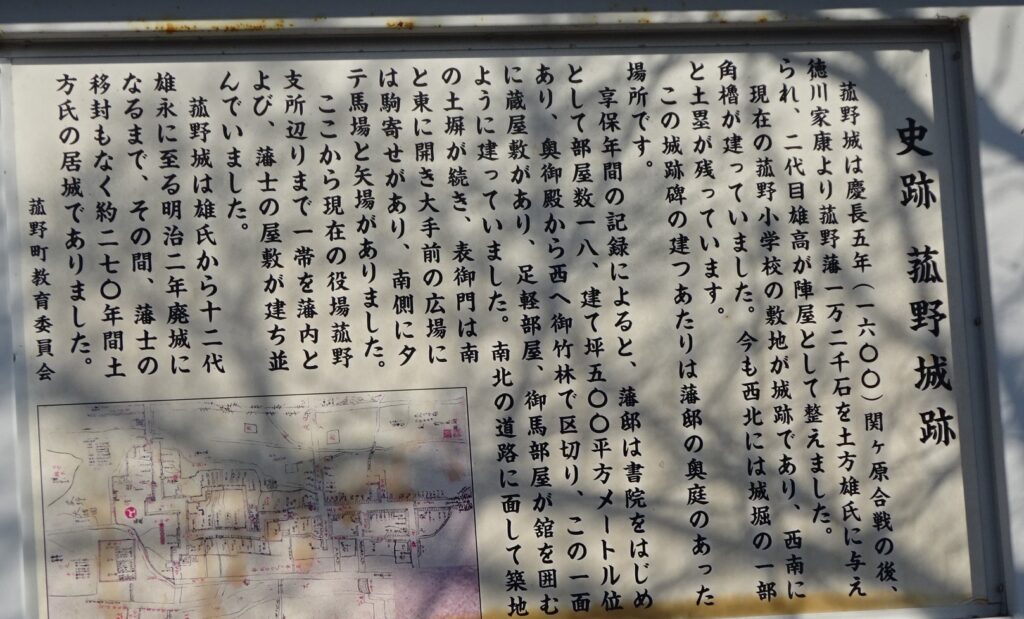 史跡 菰野城跡
菰野城は慶長五年(一六〇〇)関ヶ原合戦の後、
徳川家康より菰野藩一万二千石を土方雄氏に与え
られ、二代目雄高が陣屋として整えました。
現在の菰野小学校の敷地が城跡であり、西南に
角櫓が建っていました。今も西北には城堀の一部
と土塁が残っています。
この城跡碑の建つあたりは藩邸の奥庭のあった
場所です。
享保年間の記録によると、藩邸は書院をはじめ
として部屋数一八、建て坪五〇〇平方メートル位
あり、奥御殿から西へ御竹林で区切り、この一面
に蔵屋敷があり、足軽部屋、御馬部屋が舘を囲む
ように建っていました。南北の道路に面して築地
の土塀が続き、表御門は南
と東に開き大手前の広場に
は駒寄せがあり、南側にタ
テ馬場と矢場がありました。
ここから現在の役場菰野
支所辺りまで一帯を藩内と
よび、藩士の屋敷が建ち並
んでいました。
菰野城は雄氏から十二代
雄永に至る明治二年廃城に
なるまで、その間、藩士の
移封もなく約二七〇年間土
方氏の居城でありました。
菰野町教育委員会